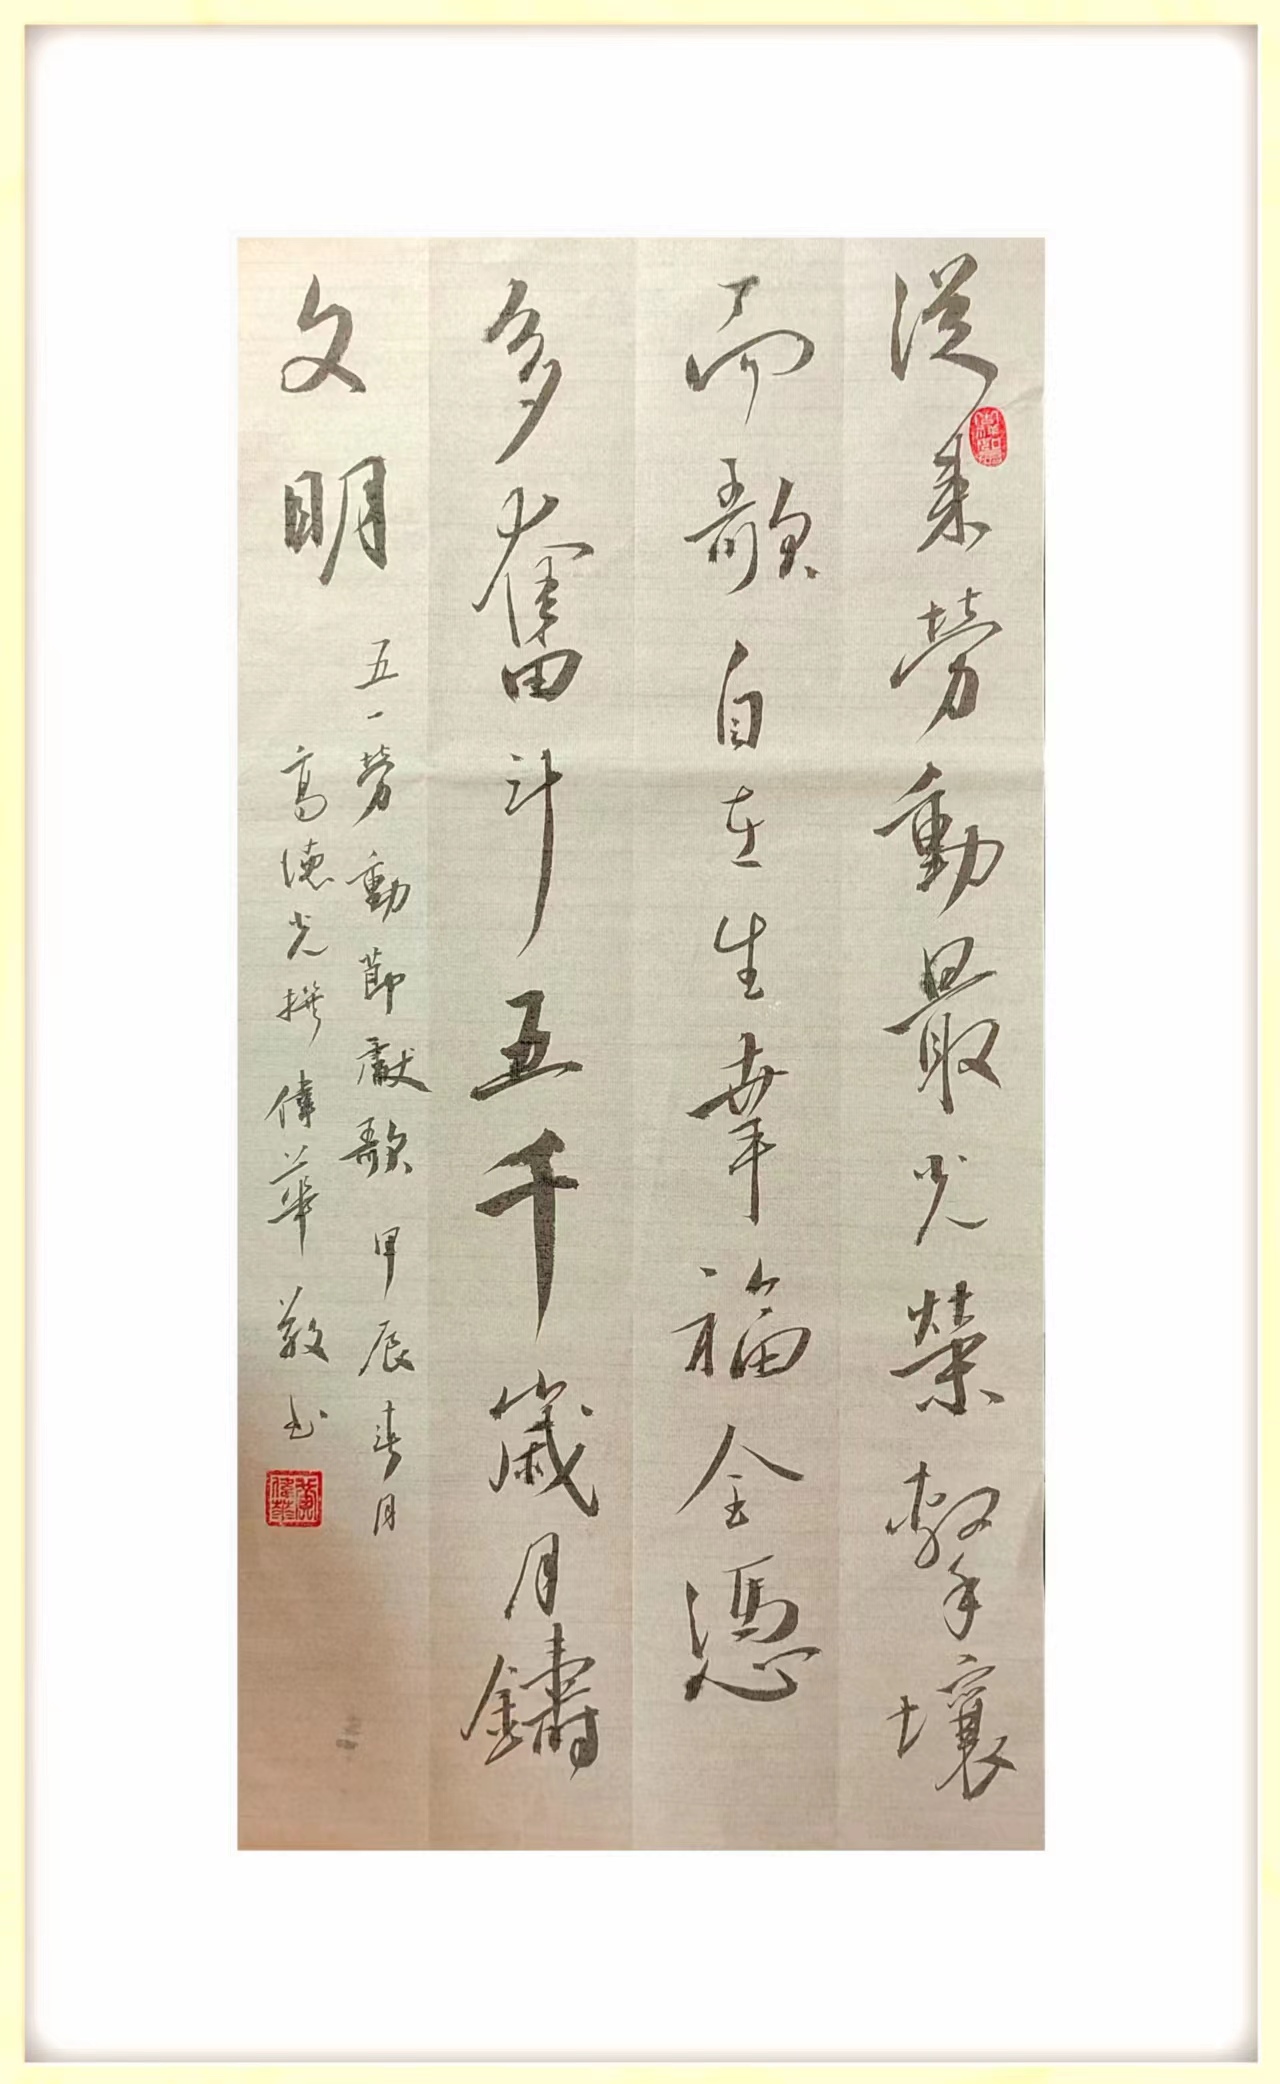 從来勞動最光榮擊壤
而歌自在生幸福全憑
多奮斗五千歲月鑄
文明
五一勞動節獻歌甲辰春月
高德光撰偉華敬书